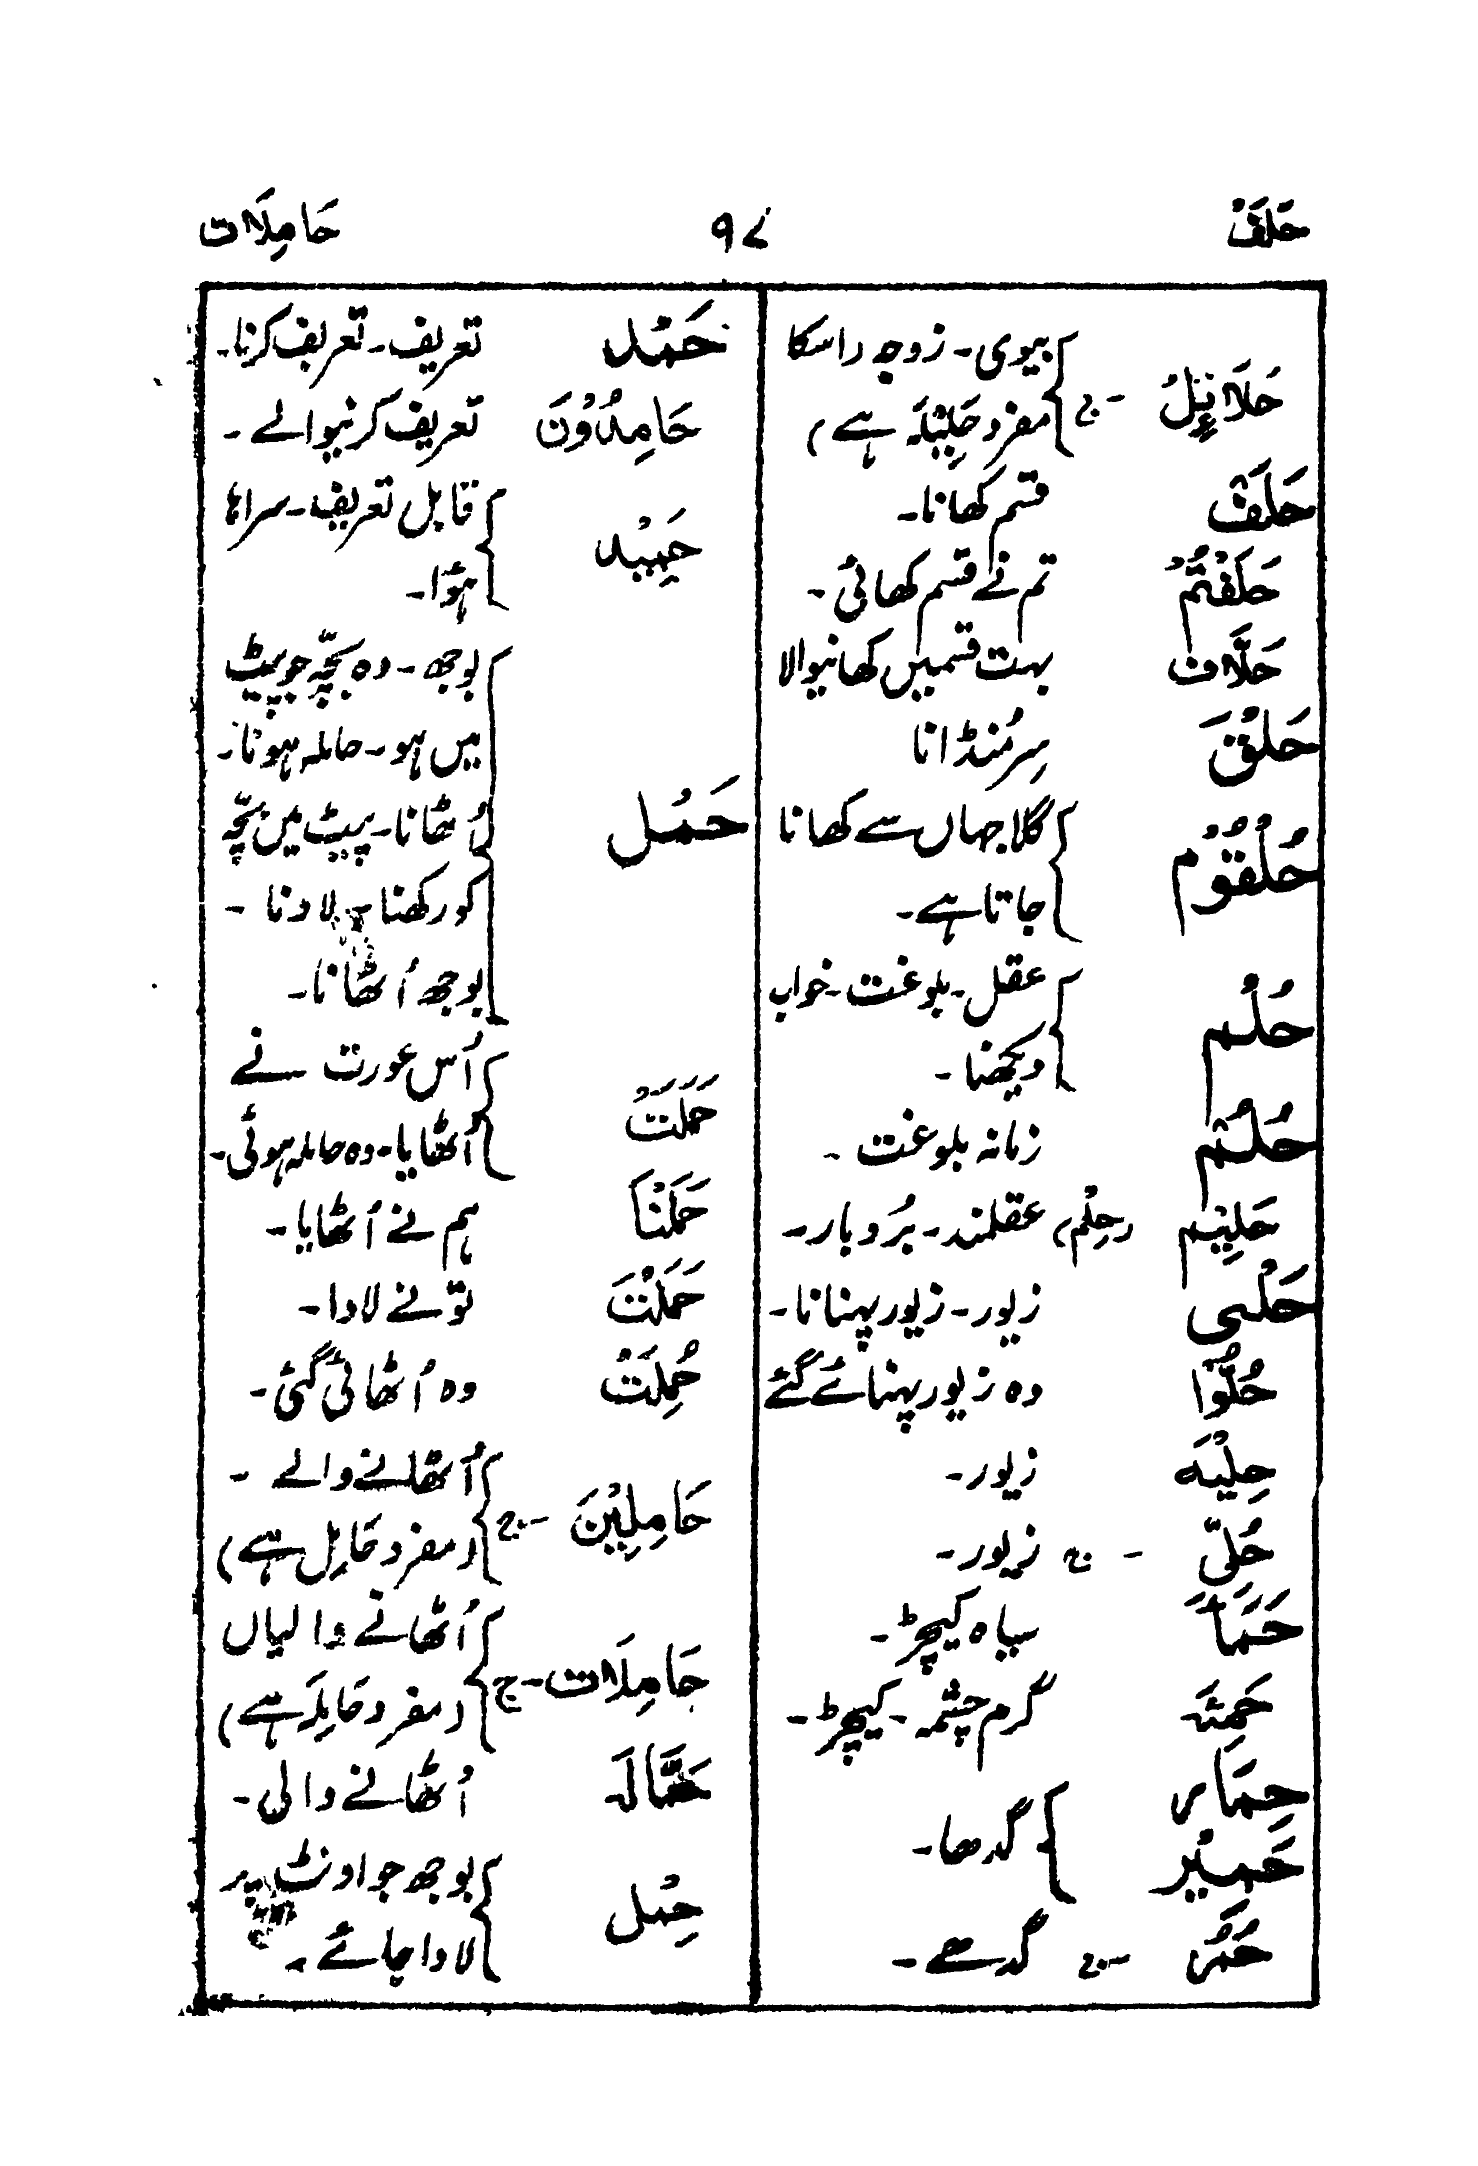 حَلَفْ ۹۷ حَامِلَات
حَلَائِلُ - ج بیوی - زوجہ (اسکا
مفرد حَلِیْلَہ ہے)
حَلَفْ قسم کھانا -
حَلَفْتُمْ تم نے قسم کھائی -
حَلَّاف بہت قسمیں کھانیوالا
حَلْقَ سر مُنڈانا
حُلْقُوْم گلا جہاں سے کھانا
جاتا ہے -
حُلُم عقل - بلوغت - خواب
دیکھنا -
حُلُمْ زمانہ بلوغت -
حَلِیْم (حِلْم) عقلمند - بُردبار -
حَلْی زیور - زیور پہنانا -
حُلُّوْا وہ زیور پہنائے گئے
حِلْیَہ زیور -
حُلِیّ - ج زیور -
حَمَاً سیاہ کیچڑ -
حَمِئَہ گرم چشمہ - کیچڑ -
حِمَار
حَمِیْر گدھا -
حُمُر - ج گدھے -
حَمْد تعریف - تعریف کرنا -
حَامِدُوْنَ تعریف کرنیوالے -
حَمِیْد قابل تعریف - سراہا
ہؤا -
حَمْل بوجھ - وہ بچّہ جو پیٹ
میں ہو - حاملہ ہونا -
اُٹھانا - پیٹ میں بچّہ
کو رکھنا - لادنا -
بوجھ اُٹھانا -
حَمَلَتْ اُس عورت نے
اُٹھایا - وہ حاملہ ہوئی -
حَمَلْنَا ہم نے اُٹھایا -
حَمَلْتَ تو نے لادا -
حُمِلَتْ وہ اُٹھائی گئی -
حَامِلِیْنَ - ج اُٹھانے والے -
(مفرد حَامِل ہے)
حَامِلَات - ج اُٹھانے والیاں
(مفرد حَامِلَہ ہے)
حَمَّالَہ اُٹھانے والی -
حِمْل بوجھ جو اونٹ پر
لادا جائے -